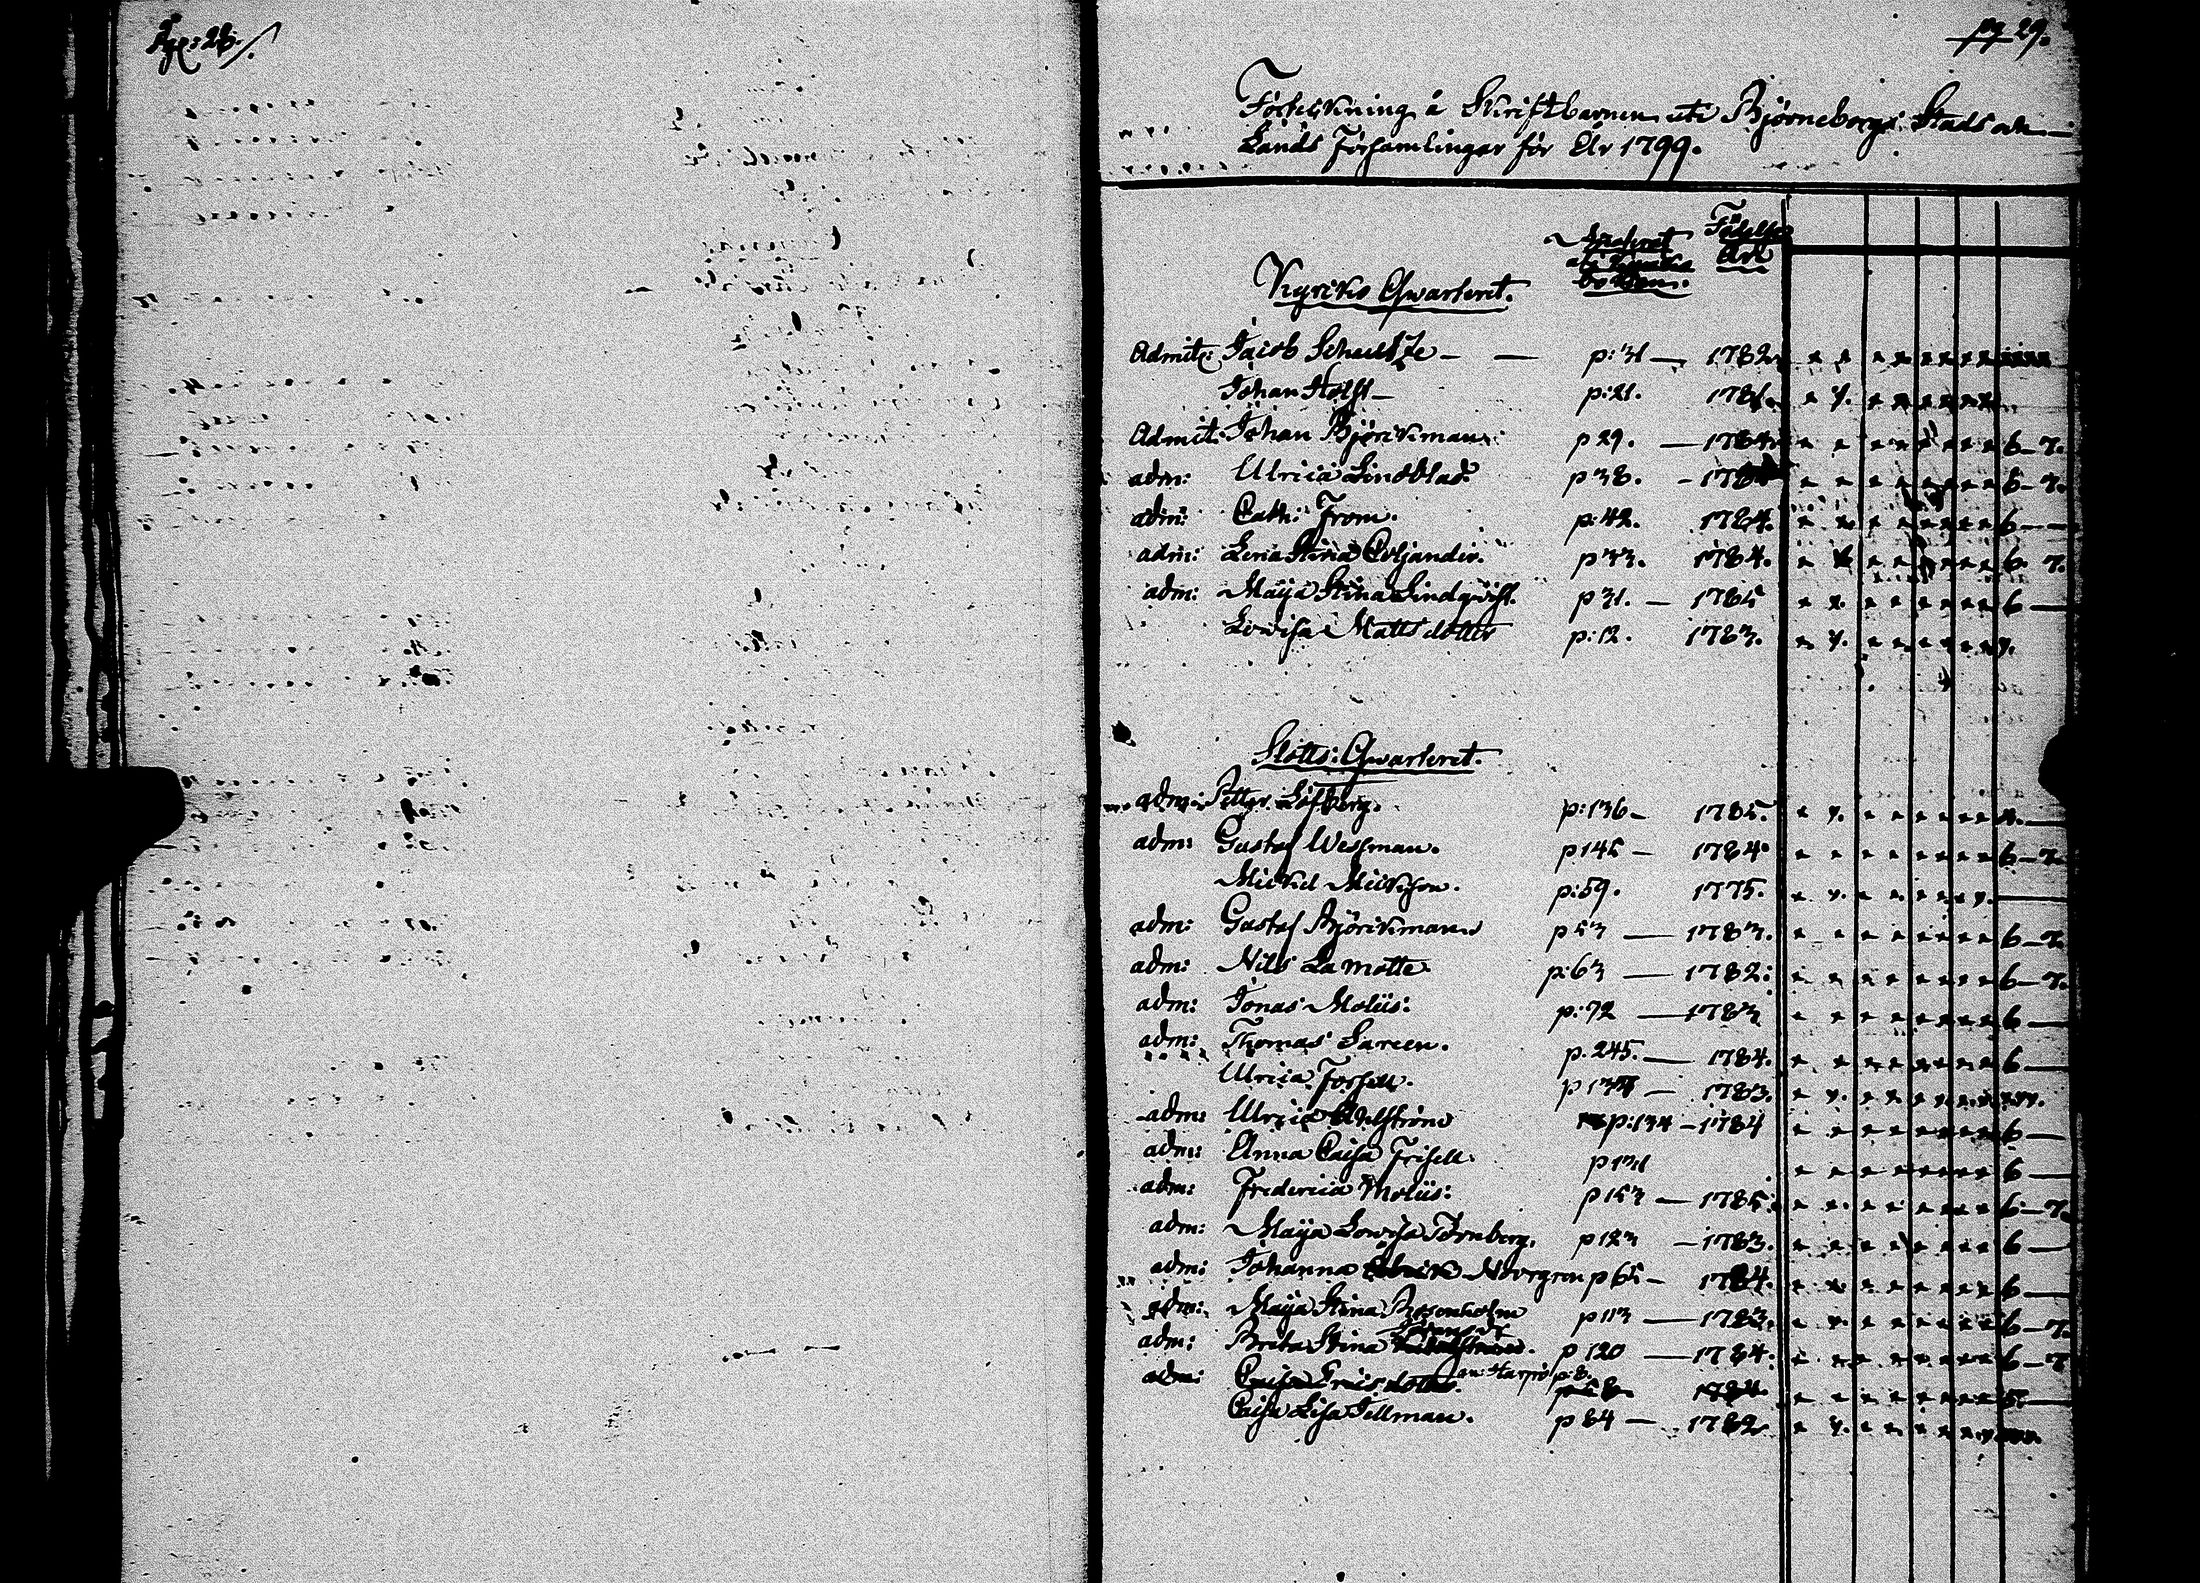 Pag: 28.
pag 29.
Förteckning å Skriftbarnen uti Björneborgs Stads och
Lands Församlingar för År 1799.
Födelse
Året
boken.
Kyrko Qwarteret.
Admit: Jacob Schultze — — p: 31 — 1782
Johan Holst — p: 21. 1781.
Admit: Johan Björckman p 29. — 1784
adm: Ulrica Lindblad p 38. - 178
adm: Cath: From. p: 42. 1784. 6 —
adm: Lena Stina p 33. 1784. 6. 7.
adm: Maija Stina Lindqvist. p 31. — 1785 6 —
Lovisa Matts dotter p: 12. 1783.
Slotts: Qwarteret.
adm: Petter Löfberg. p: 136 — 1785.
adm: Gustaf Wessman. p 145 — 1784. 6 — 7.
Mickel Mickelson. p: 59. 1775.
adm: Gustaf Björckman p 53 — 1783. 6 — 7.
adm: Nils La Motte p: 63 — 1782: 6 — 7.
adm: Jonas Moliis: p: 72 — 1783 6 —
adm: Thomas Sareen. p. 245. — 1784. 6 —
Ulrica Forsell. p 134 — 1783.
adm: Ulrica Ahlström p: 134 — 1784 6 —
adm: Anna Caisa Frisell. p 131 6 —
adm: Fredrica Moliis: p 153 — 1785. 6 — 7.
adm: Maija Lovisa Törnberg. p 123 — 1783. 6 —
adm: Johanna Norrgren p 65 — 1784. 6 —
adm: Maija Stina Rosenholm p 113 — 1783. 6 — 7.
adm: Breta Stina p 120 — 1784. 6 — 7
adm: Caisa dotter. p: 8. 1784.
Caisa Lisa Tillman. p 84 — 1782